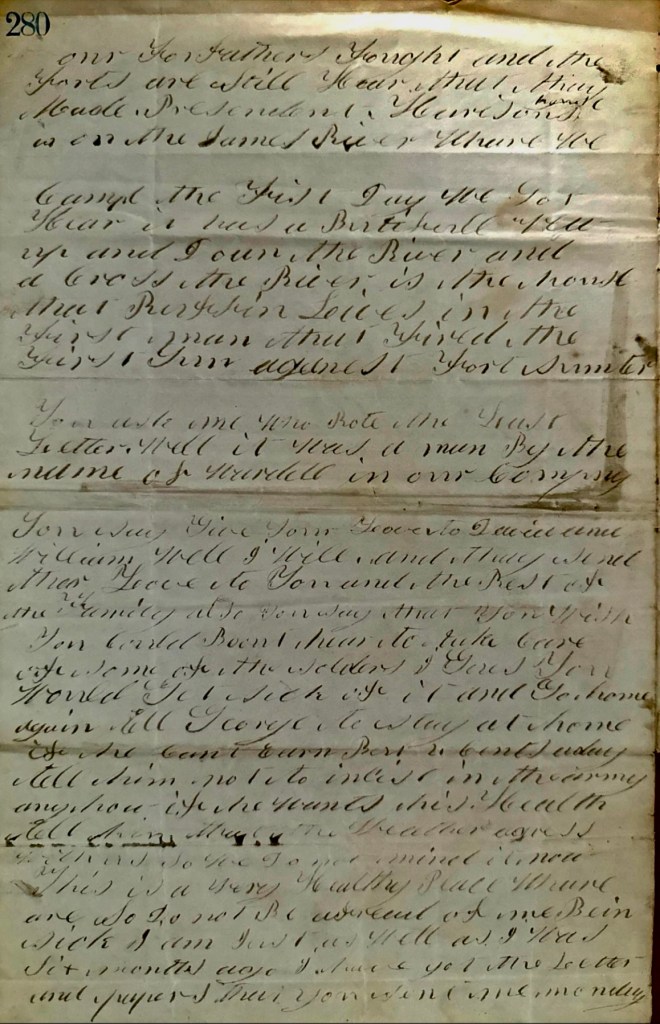 280
our Forfathers Fought and the
Forts are still Hear that thay
Made. Presendent Harisons house
is on the James River Whare We
Camp the First Day We Got
Hear it has a Butifull
up and Down the River and
a Cross the River is the house
that Lives in the
First man that Fired the
First Gun agenest Fort Sumter
You ask me Who Rote the Last
Letter Well it Was a man By the
name of Wardell in our Company
You say Give Your Love to David and
William Well I Will and thay send
thar Love to You and the Rest of
the Family also You say that You Wish
You Could Been hear to take Care
of some of the solders I Gess You
Would Get sick of it and Go home
again tell George to stay at home
if he Cant Earn But 2 Cents a day
tell him not to inlist in the army
anyhow if he Wants his Health
tell him that the Weather agress
With us so We Do not mind it now
This is a Very Healthy Place Whare
are so Do not Be afread of me Bein
sick I am Just as Well as I Was
Six months ago I have got the Letter
and papers that you sent me monday